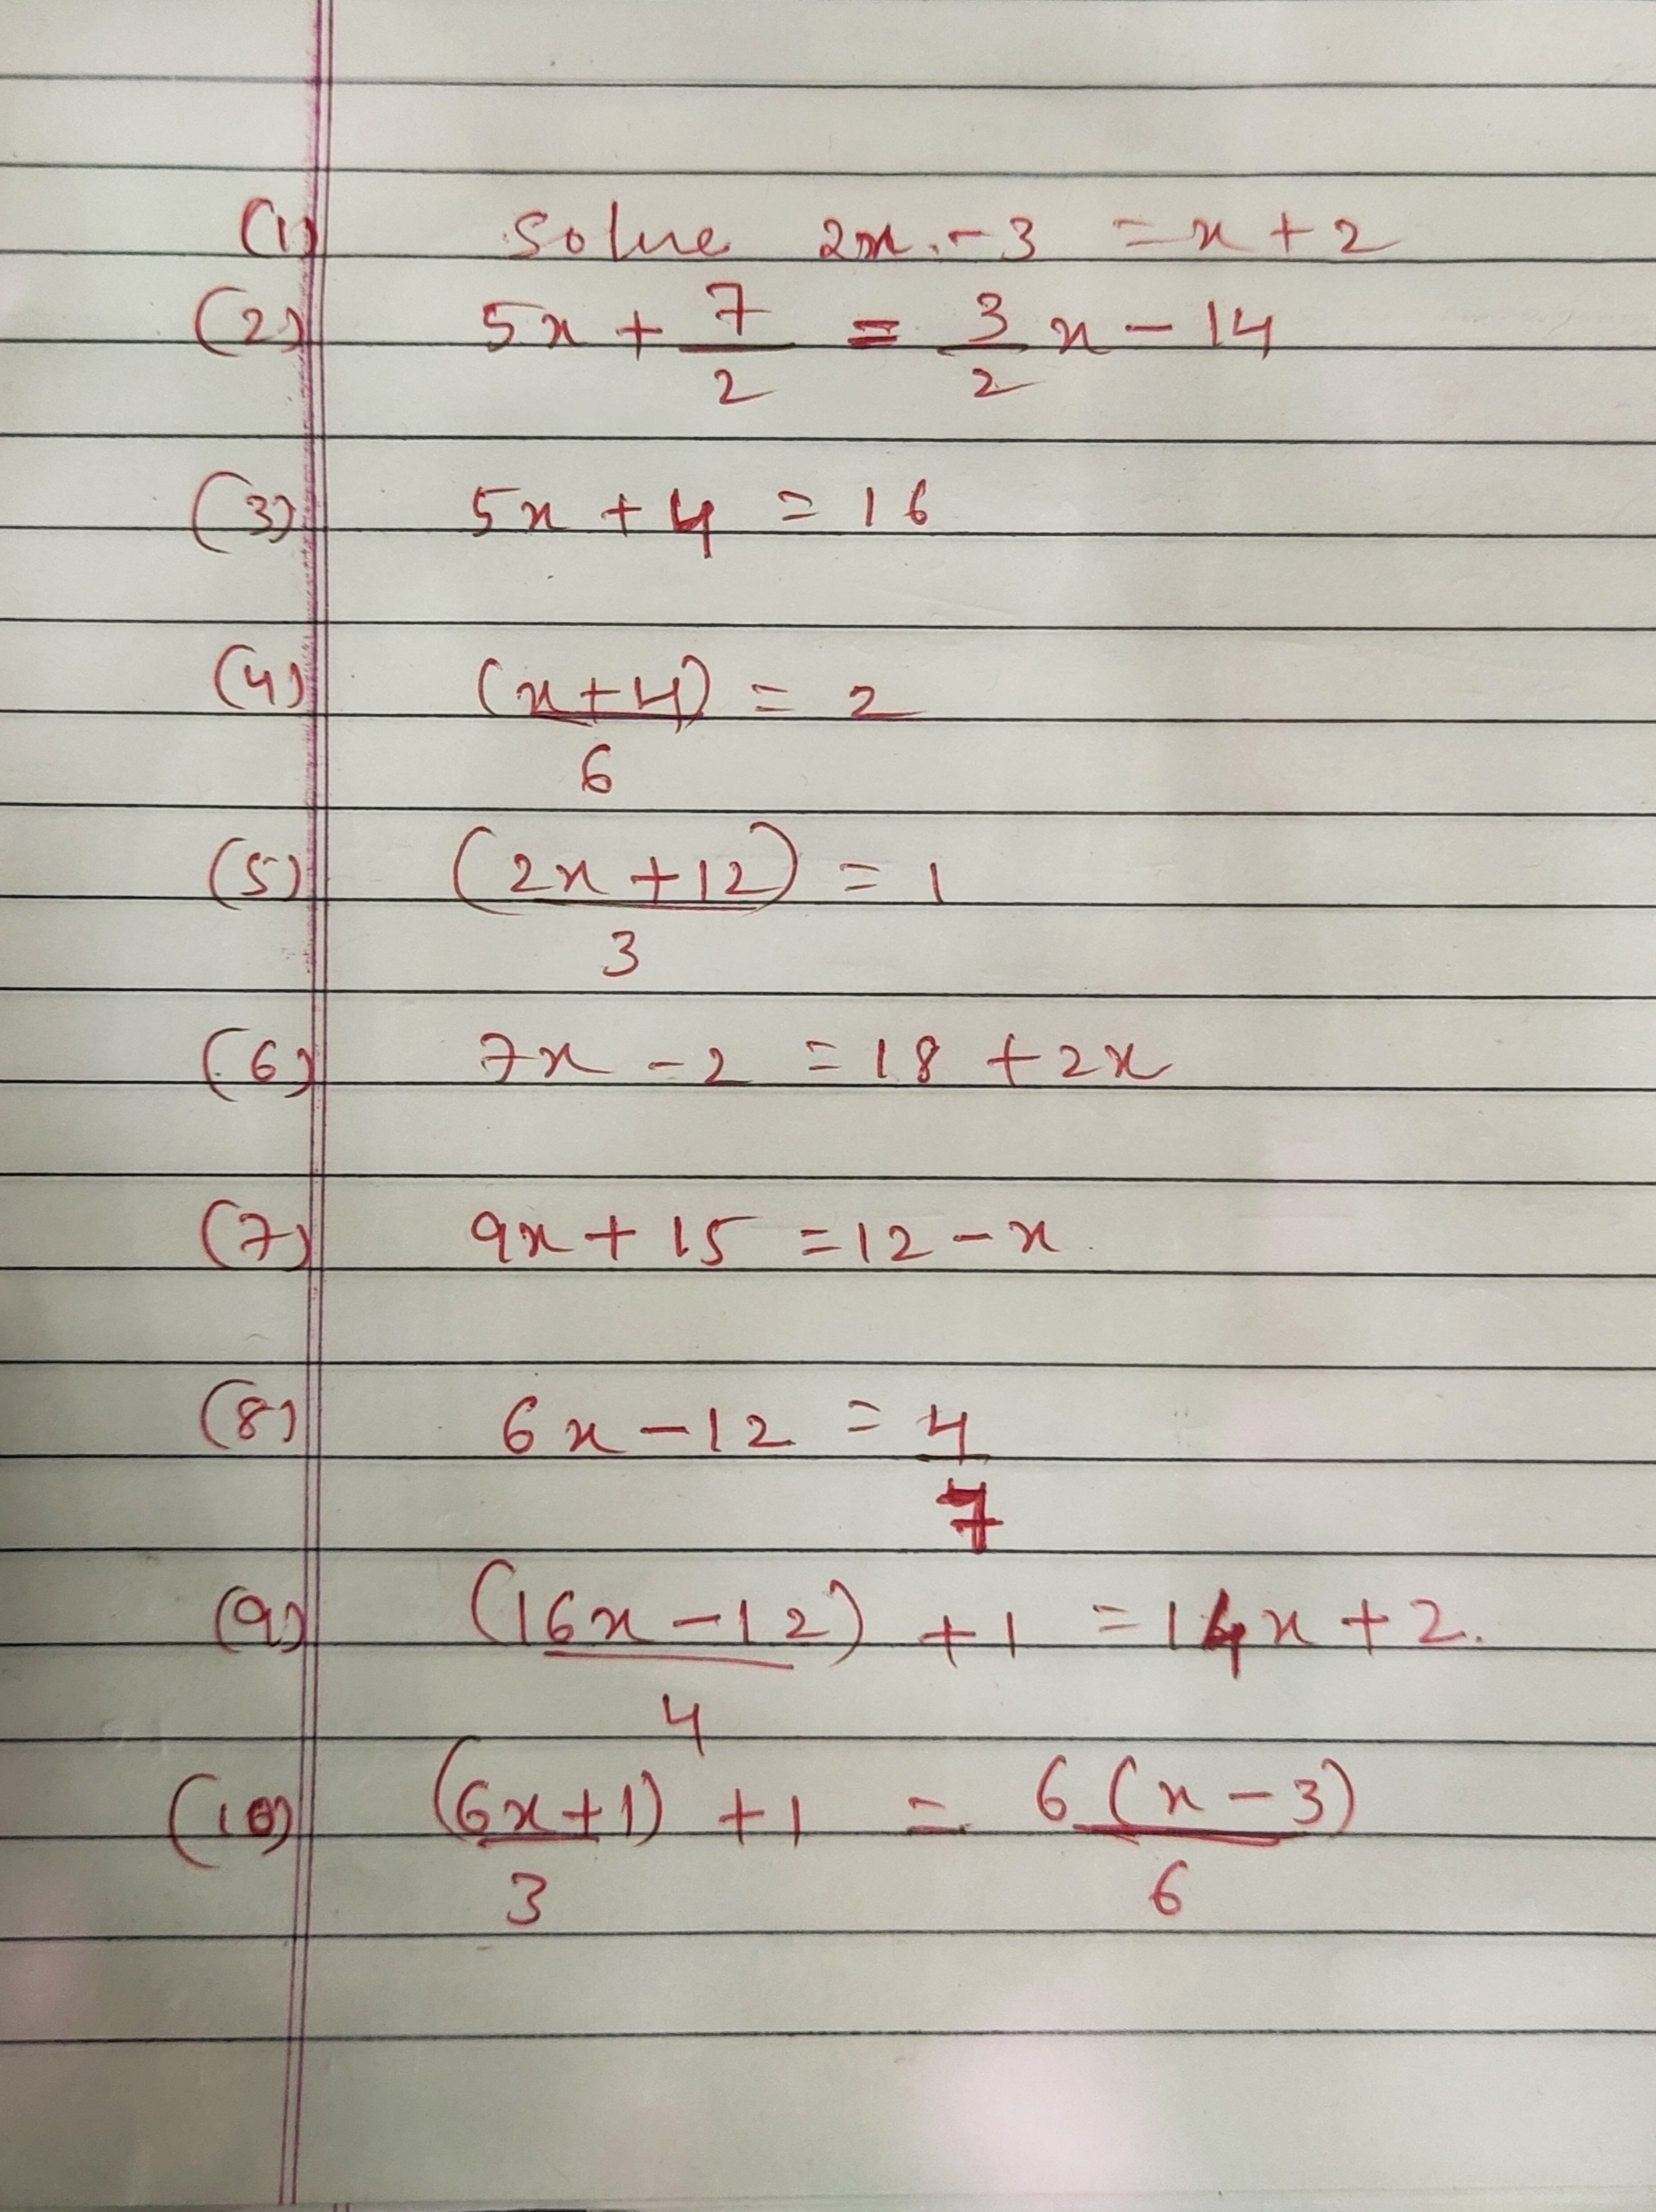 (1) Solve 2x - 3 = x + 2
(2) 5x + 7/2 = 3/2 x - 14
(3) 5x + 4 = 16
(4) (x+4)/6 = 2
(5) (2x + 12)/3 = 1
(6) 7x - 2 = 18 + 2x
(7) 9x + 15 = 12 - x
(8) 6x - 12 = 4/7
(9) (16x - 12)/4 + 1 = 14x + 2.
(10) (6x+1)/3 + 1 = 6(x - 3)/6